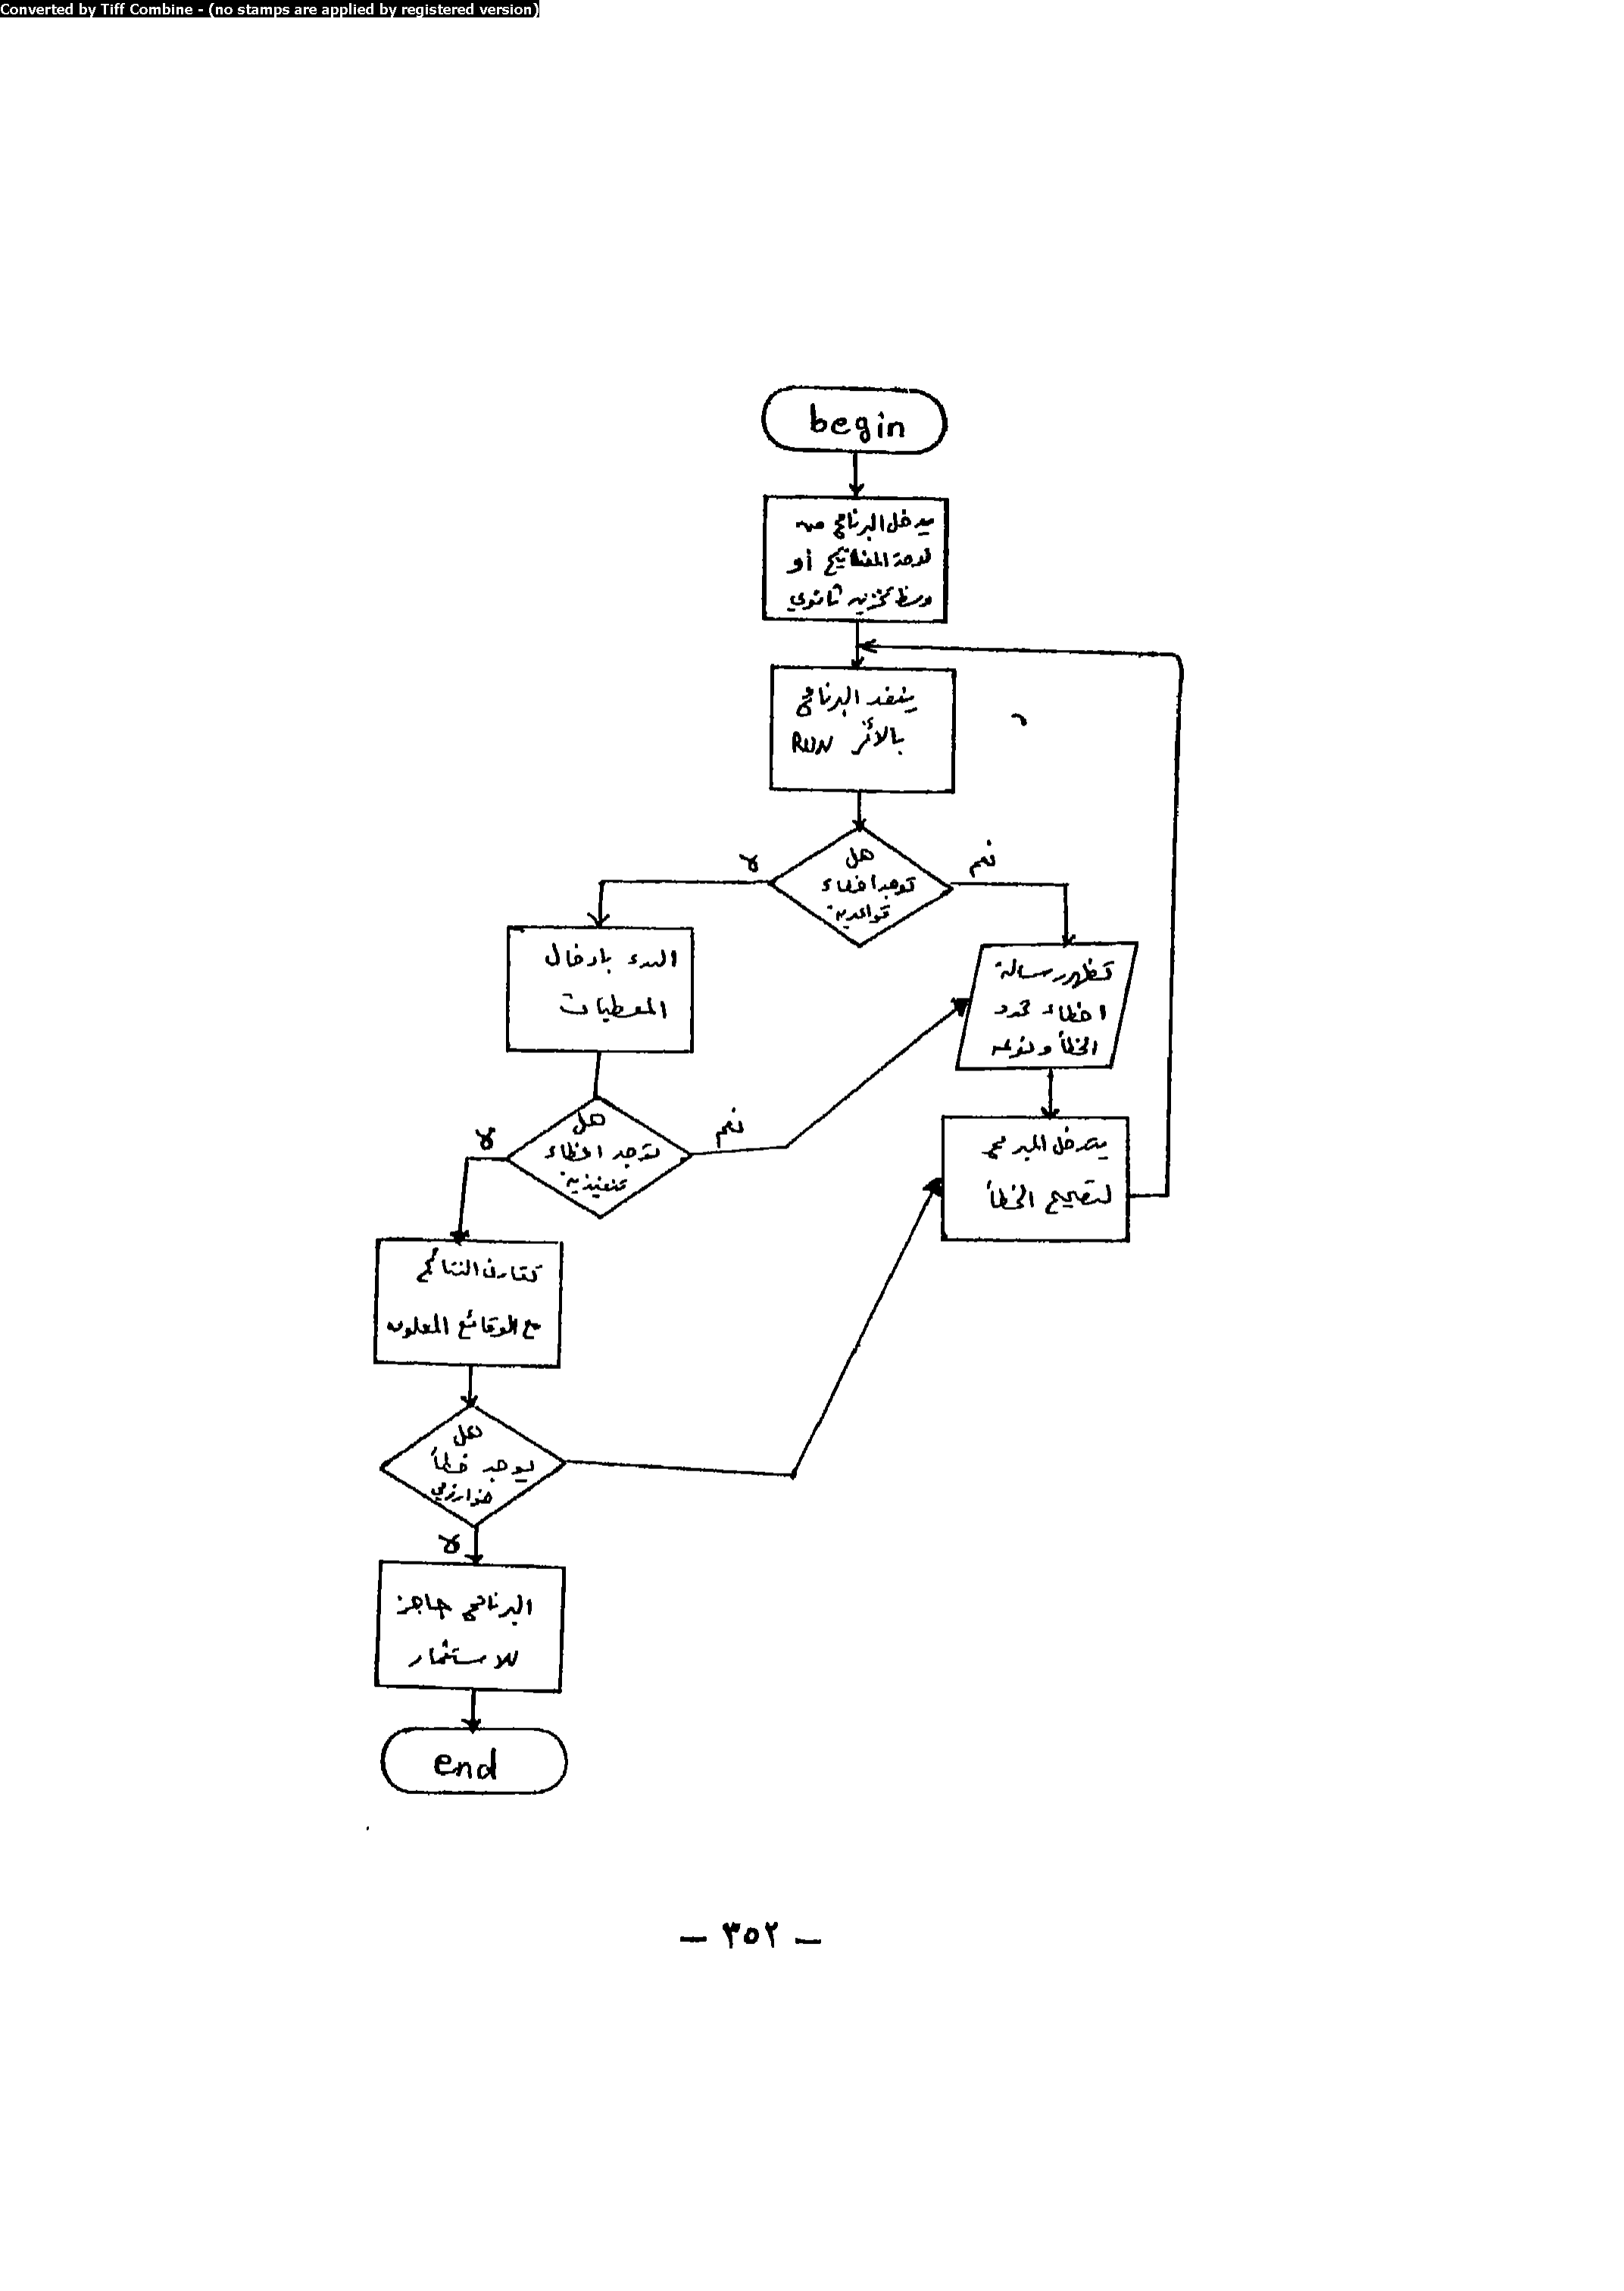 Converted by Tiff Combine - (no stamps are applied by registered version)
begin
يدخل البرنامج من
لوحة المفاتيح أو
وسط تخزين ثانوي
ينفذ البرنامج
بالأمر RUN
هل
توجد اخطاء
قواعدية
نعم
لا
تظهر رسالة
اخطاء تحدد
الخطأ ونوعه
البدء بادخال
المعطيات
هل
توجد اخطاء
تنفيذية
نعم
لا
يتدخل المبرمج
لتصحيح الخطأ
تقارن النتائج
مع الوقائع المعلومة
هل
يوجد خطأ
خوارزمي
لا
البرنامج جاهز
للاستثمار
end
— ٣٥٢ —